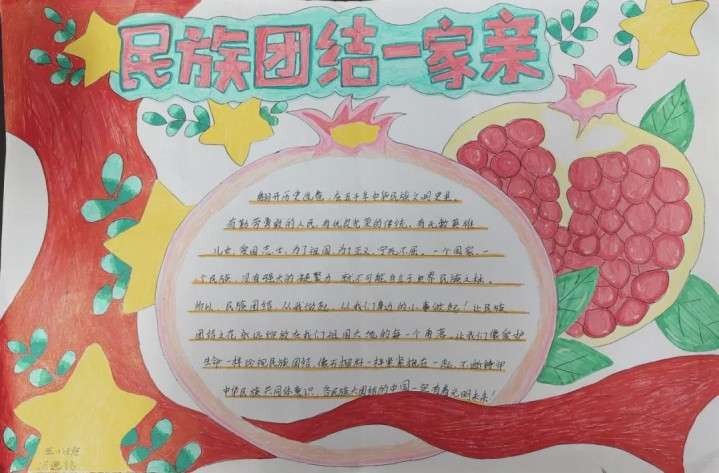 民族团结一家亲
翻开历史画卷,在五千年中华民族文明史里,
有勤劳勇敢的人民,有优良光荣的传统,有无数英雄
儿女,爱国志士,为了祖国,为了正义,宁死不屈。一个国家,一
个民族,没有强大的凝聚力,就不可能自立于世界民族之林。
所以,民族团结,从我做起,从我们身边的小事做起!让民族
团结之花永远绽放在我们祖国大地的每一个角落,让我们像爱护
生命一样珍视民族团结,像石榴籽一样紧紧抱在一起,不断铸牢
中华民族共同体意识,各民族大团结的中国一定有着光明未来!